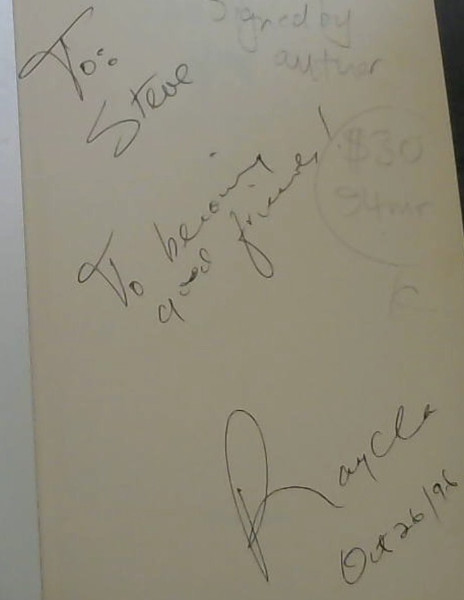 Signed by
author
To:
Steve
$30
To becoming
good friends!
Oct 26/96